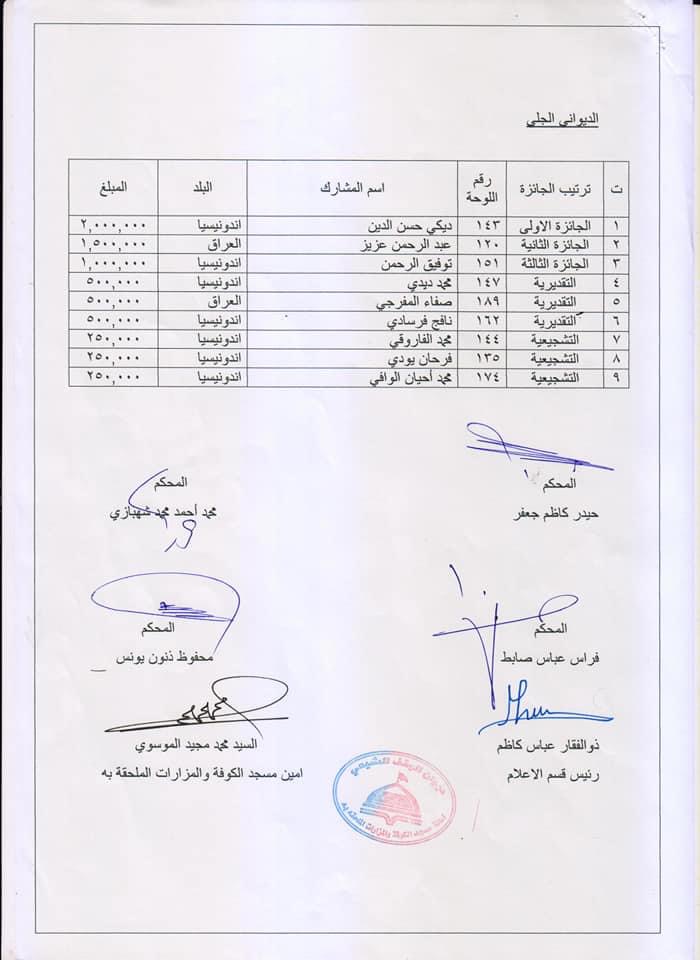 الديواني الجلي
ت ترتيب الجائزة رقم اللوحة اسم المشارك البلد المبلغ
١ الجائزة الاولى ١٤٣ ديكي حسن الدين اندونيسيا ٢,٠٠٠,٠٠٠
٢ الجائزة الثانية ١٢٠ عبد الرحمن عزيز العراق ١,٥٠٠,٠٠٠
٣ الجائزة الثالثة ١٥١ توفيق الرحمن اندونيسيا ١,٠٠٠,٠٠٠
٤ التقديرية ١٤٧ محمد ديدي اندونيسيا ٥٠٠,٠٠٠
٥ التقديرية ١٨٩ صفاء المفرجي العراق ٥٠٠,٠٠٠
٦ التقديرية ١٦٢ نافح فرسادي اندونيسيا ٥٠٠,٠٠٠
٧ التشجيعية ١٤٤ محمد الفاروقي اندونيسيا ٢٥٠,٠٠٠
٨ التشجيعية ١٣٥ فرحان يودي اندونيسيا ٢٥٠,٠٠٠
٩ التشجيعية ١٧٤ محمد أحيان الوافي اندونيسيا ٢٥٠,٠٠٠
المحكم المحكم
حيدر كاظم جعفر محمد أحمد محمد شهبازي
المحكم المحكم
فراس عباس ضابط محفوظ ذنون يونس
ذوالفقار عباس كاظم السيد محمد مجيد الموسوي
رئيس قسم الاعلام امين مسجد الكوفة والمزارات الملحقة به
ديوان الوقف الشيعي
امانة مسجد الكوفة والمزارات الملحقة به